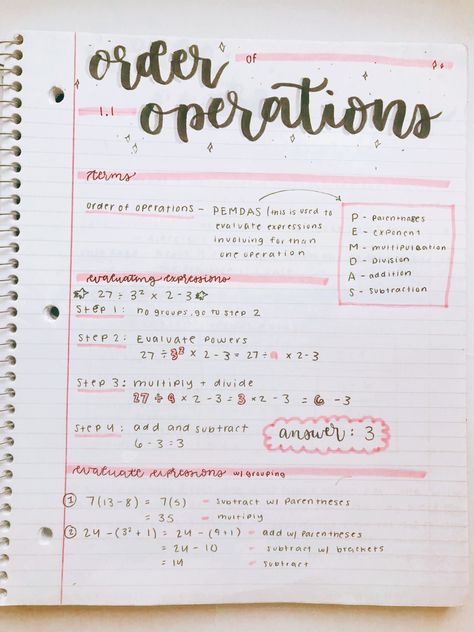 order of
1.1 operations
terms
order of operations - PEMDAS (this is used to
evaluate expressions
involving for than
one operation
P - parentheses
E - exponent
M - multiplication
D - division
A - addition
S - subtraction
evaluating expressions
27 ÷ 3² × 2 - 3
Step 1: no groups, go to step 2
Step 2: Evaluate powers
27 ÷ 3² × 2 - 3 = 27 ÷ 9 × 2 - 3
Step 3: multiply + divide
27 ÷ 9 × 2 - 3 = 3 × 2 - 3 = 6 - 3
Step 4: add and subtract
6 - 3 = 3
answer: 3
evaluate expressions w/ grouping
① 7(13-8) = 7(5) - subtract w/ parentheses
= 35 - multiply
② 24 - (3² + 1) = 24 - (9+1) - add w/ parentheses
= 24 - 10 - subtract w/ brackets
= 14 - subtract